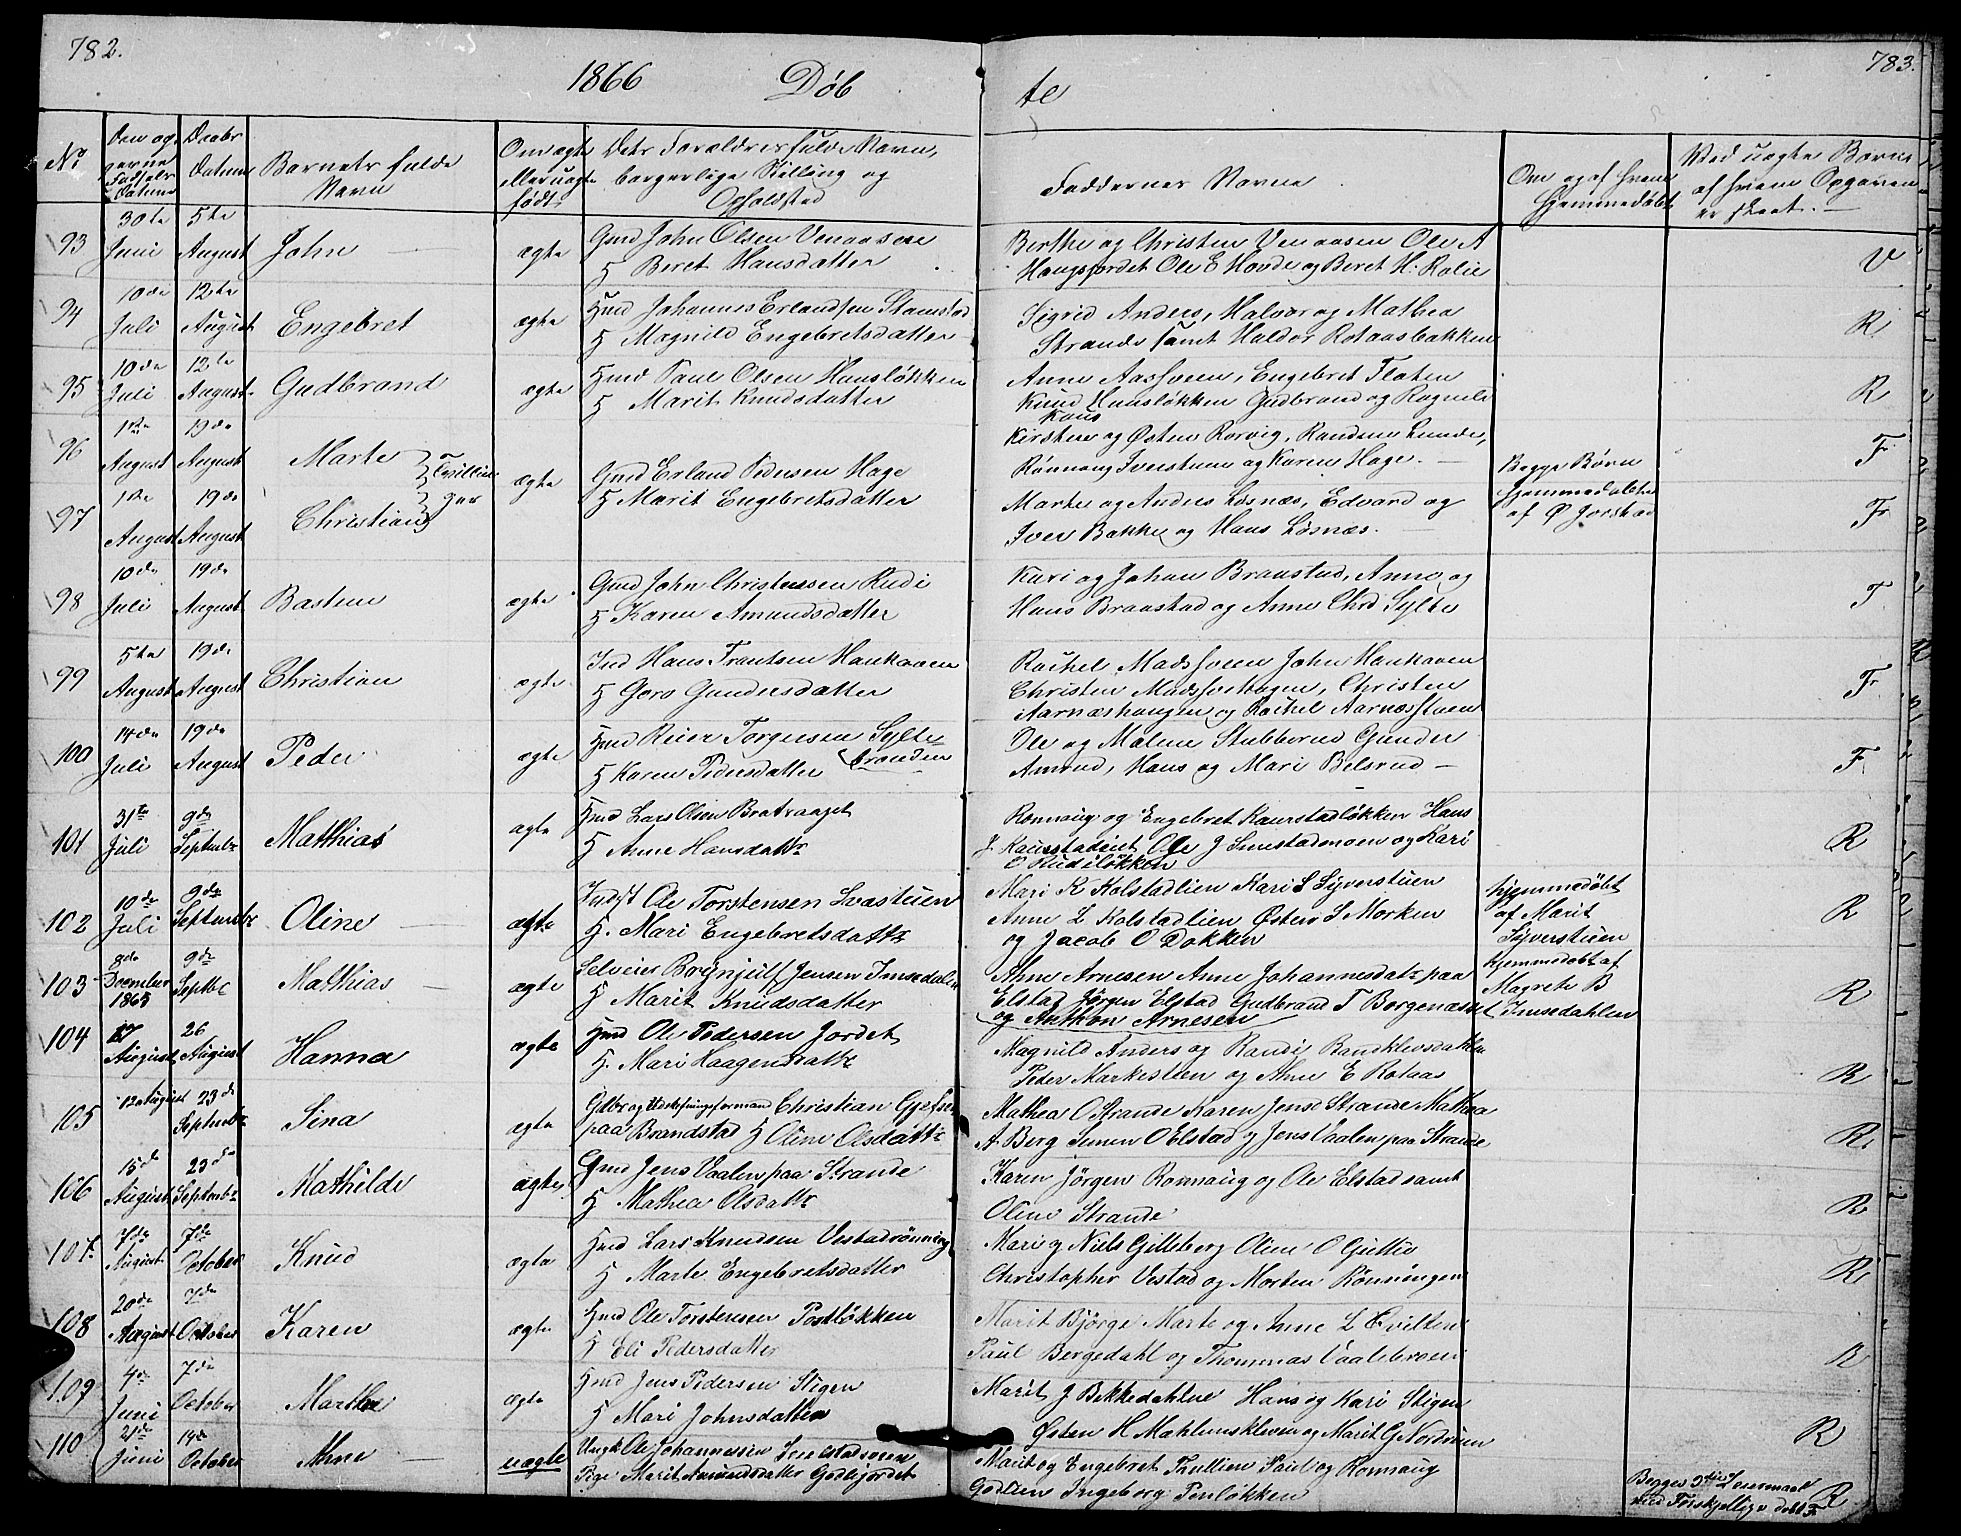 782.
1866 Døb
te
783.
No
Den og
Daabs
Datum
Barnets fulde
Navn
Om ægte
eller uægte
født
Dets Forældres fulde Navn,
borgerlige Stilling og
Opholdsted
Faddernes Navne
Om og af hvem
hjemmedøbt
Ved uægte Børn
af hvem Opgaven
er skeet. —
93 30te Juni 5te August John ægte
Gmd John Olsen Venaasen
H Beret Hansdatter
Berthe og Christen Venaasen Ole A
Haugsjordet Ole E Hovde og Beret H. Kolie
V
94 10de Juli 12te August Engebret ægte
Hmd Johannes Erlandsen Stamstad
H Magnild Engebretsdatter
Sigrid Anders, Halvor og Mathea
Strande samt Haldor Rotaasbakken
R
95 10de Juli 12te August Gudbrand ægte
Hmd Paul Olsen Hansløkken
H Marit Knudsdatter
Anne Aassveen, Engebret Floten
Knud Hansløkken Gudbrand og Ragnild
R
96 1ste August 19de August Marte
97 1ste August 19de August Christian
Tvillin
ger
ægte
Gmd Erland Pedersen Hage
H Marit Engebretsdatter
Kirsten og Østen Rorvig, Randine Lunde,
Rønnaug Iverstuen og Karen Hage. —
Marte og Anders Losnæs, Edvard og
Iver Bakke og Hans Losnæs. —
Begge Børn
hjemmedøbte
af Ø Jorstad
Fr
Fr
98 10de Juli 19de August Bastian ægte
Gmd John Christensen Rudi
H Karen Amundsdatter
Kari og Johan Braastad, Anne og
Hans Braastad og Anne Chrd Sylte
F
99 5te August 19de August Christian ægte
Ind Hans Frantsen Haukaaen
H Goro Gundersdatter
Rachel Madssveen John Haukaaen
Christen Madssvehagen, Christen
Aarnæshaugen og Rachel Aarnæsstuen
Fr
100 14de Juli 19de August Peder ægte
Hmd Reier Torgersen Sylte
branden
H Karen Pedersdatter
Ole og Malene Stubberud Gunder
Amrud, Hans og Mari Belsrud —
F
101 31te Juli 9de Septembr Matthias ægte
Hmd Lars Olsen Bratraajet
H Anne Hansdattr
Ronnaug og Engebret Kaurstadløkken Hans
J Kaurstadeiet Ole J Smestadmoen og Kari
O Rudiløkken
R
102 10de Juli 9de Septembr Oline ægte
Indst Ole Torstensen Svastuen
H. Mari Engebretsdattr
Mari K Kolstadlien Kari S Syverstuen
Anne L Kolstadlien Østen S Morken
og Jacob O Dokken
hjemmedøbt
af Marit
Syverstuen
R
103 8de December 1865 9de Septbr Matthias ægte
Selveier Brynjulf Jensen Imsedalen
H Marit Knudsdatter
Ahne Arnesen Anne Johannesdatr paa
Elstad Jørgen Elstad Gudbrand T Borgenæsset
og Anthon Arnesen
hjemmedøbt af
Magrete B
Imsedahlen
R
104 17 August 26 August Hanna ægte
Hmd Ole Pedersen Jordet
H. Mari Haagensdattr
Magnild Anders og Randi Randklevsdahlen
Peder Markestien og Ahne E Rotaas
R
105 12 August 23de Septembr Sina ægte
Christian Gjefsen
paa Brandstad H Oline Olsdattr
Mathea O Strande Karen Jensd Strande Mathea
A Berg Simen O Elstad og Jens Vaalen paa Strande
R.
106 15de August 23de Septembr Mathilde ægte
Gmd Jens Vaalen paa Strande
H Mathea Olsdattr
Karen Jörgen Ronnaug og Ole Elstad samt
Oline Strande
R
107. 7de August 7de October Knud ægte
Hmd Lars Knudsen Vestadrönning
H Marte Engebretsdatter
Mari og Niels Gilleberg Oline O Guttu
Christopher Vestad og Morten Rönningen
R
108 20de August 7de October Karen ægte
Hmd Ole Torstensen Postløkken
H Eli Pedersdatter
Marit Bjørge Marte og Anne L Qvilten
Paul Bergedahl og Thommas Vaalebroen
R
109 4de Juni 7de October Marthe ægte
Hmd Jens Pedersen Stigen
H Mari Johnsdatter
Marit J Bekkedahlen Hans og Kari Stigen
Østen H Mæhlumskleven og Marit G Nordrum
R
110 21de Juni 14de October Ahne — uægte
Ungk Ole Johannessen
Pige Marit Amundsdatter Godlijordet
Marit og Engebret Thullien Paul og Ronnaug
Godlien Ingeborg Penløkken
Begges 2den Leiermaal
med Forskjellige døbt F
R